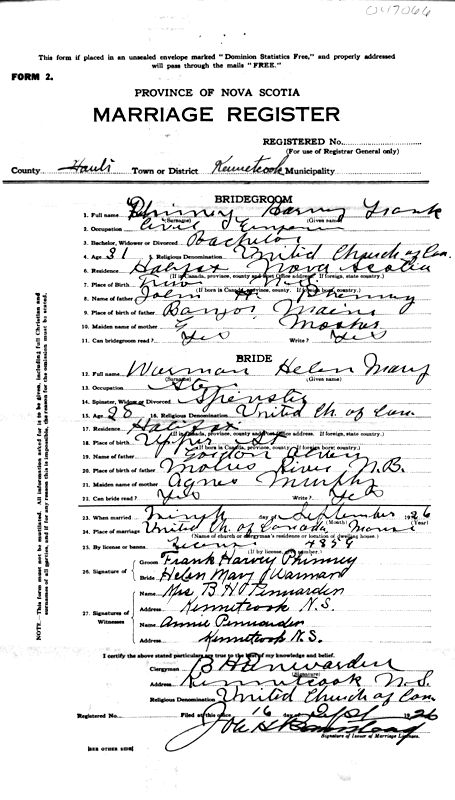 047066
This form if placed in an unsealed envelope marked "Dominion Statistics Free," and properly addressed
will pass through the mails "FREE."
FORM 2.
PROVINCE OF NOVA SCOTIA
MARRIAGE REGISTER
REGISTERED No.
(For use of Registrar General only)
County Hants Town or District Kennetcook Municipality
BRIDEGROOM
1. Full name Phinney Harvey Frank
(Surname) (Given name)
2. Occupation Civil Engineer
3. Bachelor, Widower or Divorced Bachelor
4. Age 31 5. Religious Denomination United Church of Can.
6. Residence Halifax Nova Scotia
(If in Canada, province, county and Post Office address. If foreign, state country.)
7. Place of Birth Truro N.S.
(If born in Canada, province, county. If foreign born, country.)
8. Name of father John H. Phinney
9. Place of birth of father Bangor Maine
10. Maiden name of mother
11. Can bridegroom read? Yes Write? Yes
BRIDE
12. Full name Warman Helen Mary
(Surname) (Given name)
13. Occupation
14. Spinster, Widow or Divorced Spinster
15. Age 28 16. Religious Denomination United Ch. of Can.
17. Residence Halifax
(If in Canada, province, county and Post Office address. If foreign, state country.)
18. Place of birth Upper
(If born in Canada, province, county. If foreign born, country.)
19. Name of father Gordon
20. Place of birth of father Molus River N.B.
21. Maiden name of mother Agnes Murphy
22. Can bride read? Yes Write? Yes
23. When married Ninth day of September 1926
(Month) (Year)
24. Place of marriage United Ch. of Canada Manse
(Name of church or clergyman's residence or location of dwelling house.)
25. By license or banns License 4359
(If by license, number.)
26. Signature of
Groom Frank Harvey Phinney
Bride Helen Mary Warman
27. Signatures of Witnesses
Name Mrs. B H Penwarden
Address Kennetcook N.S.
Name Annie Penwarden
Address Kennetcook N.S.
I certify the above stated particulars are true to the best of my knowledge and belief.
Clergyman B H Penwarden
(Signature)
Address Kennetcook N.S.
Religious Denomination United Church of Can.
Registered No. Filed at this office 16 day of Sept 1926
Signature of Issuer of Marriage Licenses.
[SEE OTHER SIDE]
NOTE.—This form must not be mutilated. All information asked for is to be given, including full Christian and
surnames of all parties, and if for any reason this is impossible, the reason for the omission must be stated.